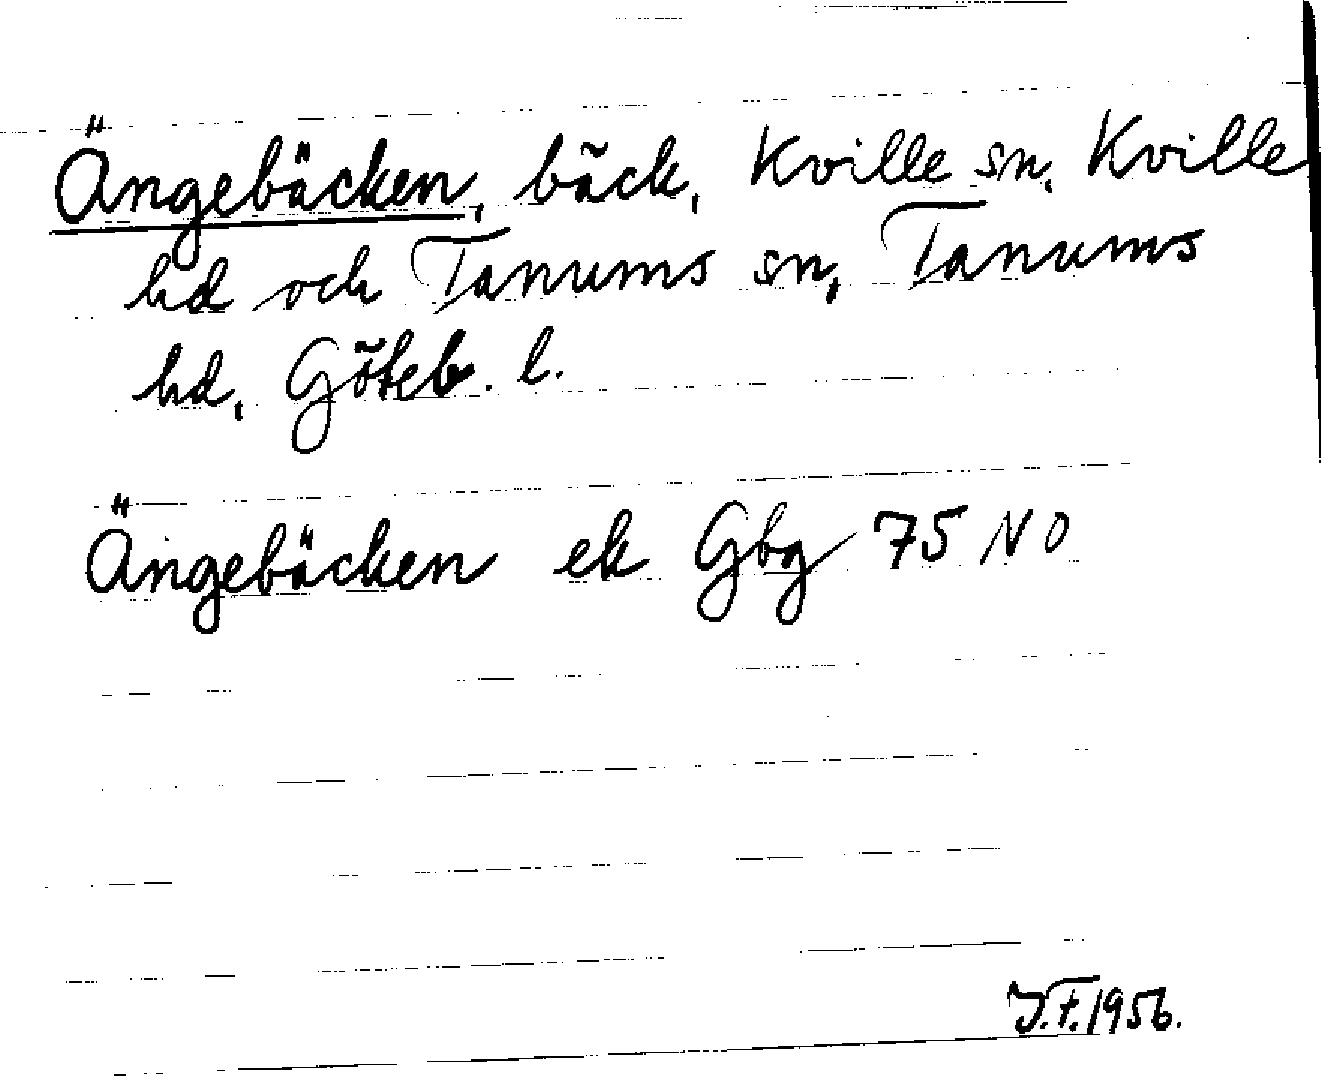 Ängebäcken, bäck, Kville sn, Kville
hd och Tanums sn, Tanums
hd, Göteb. l.
Ängebäcken ek Gbg 75 NO
J.F. 1956.